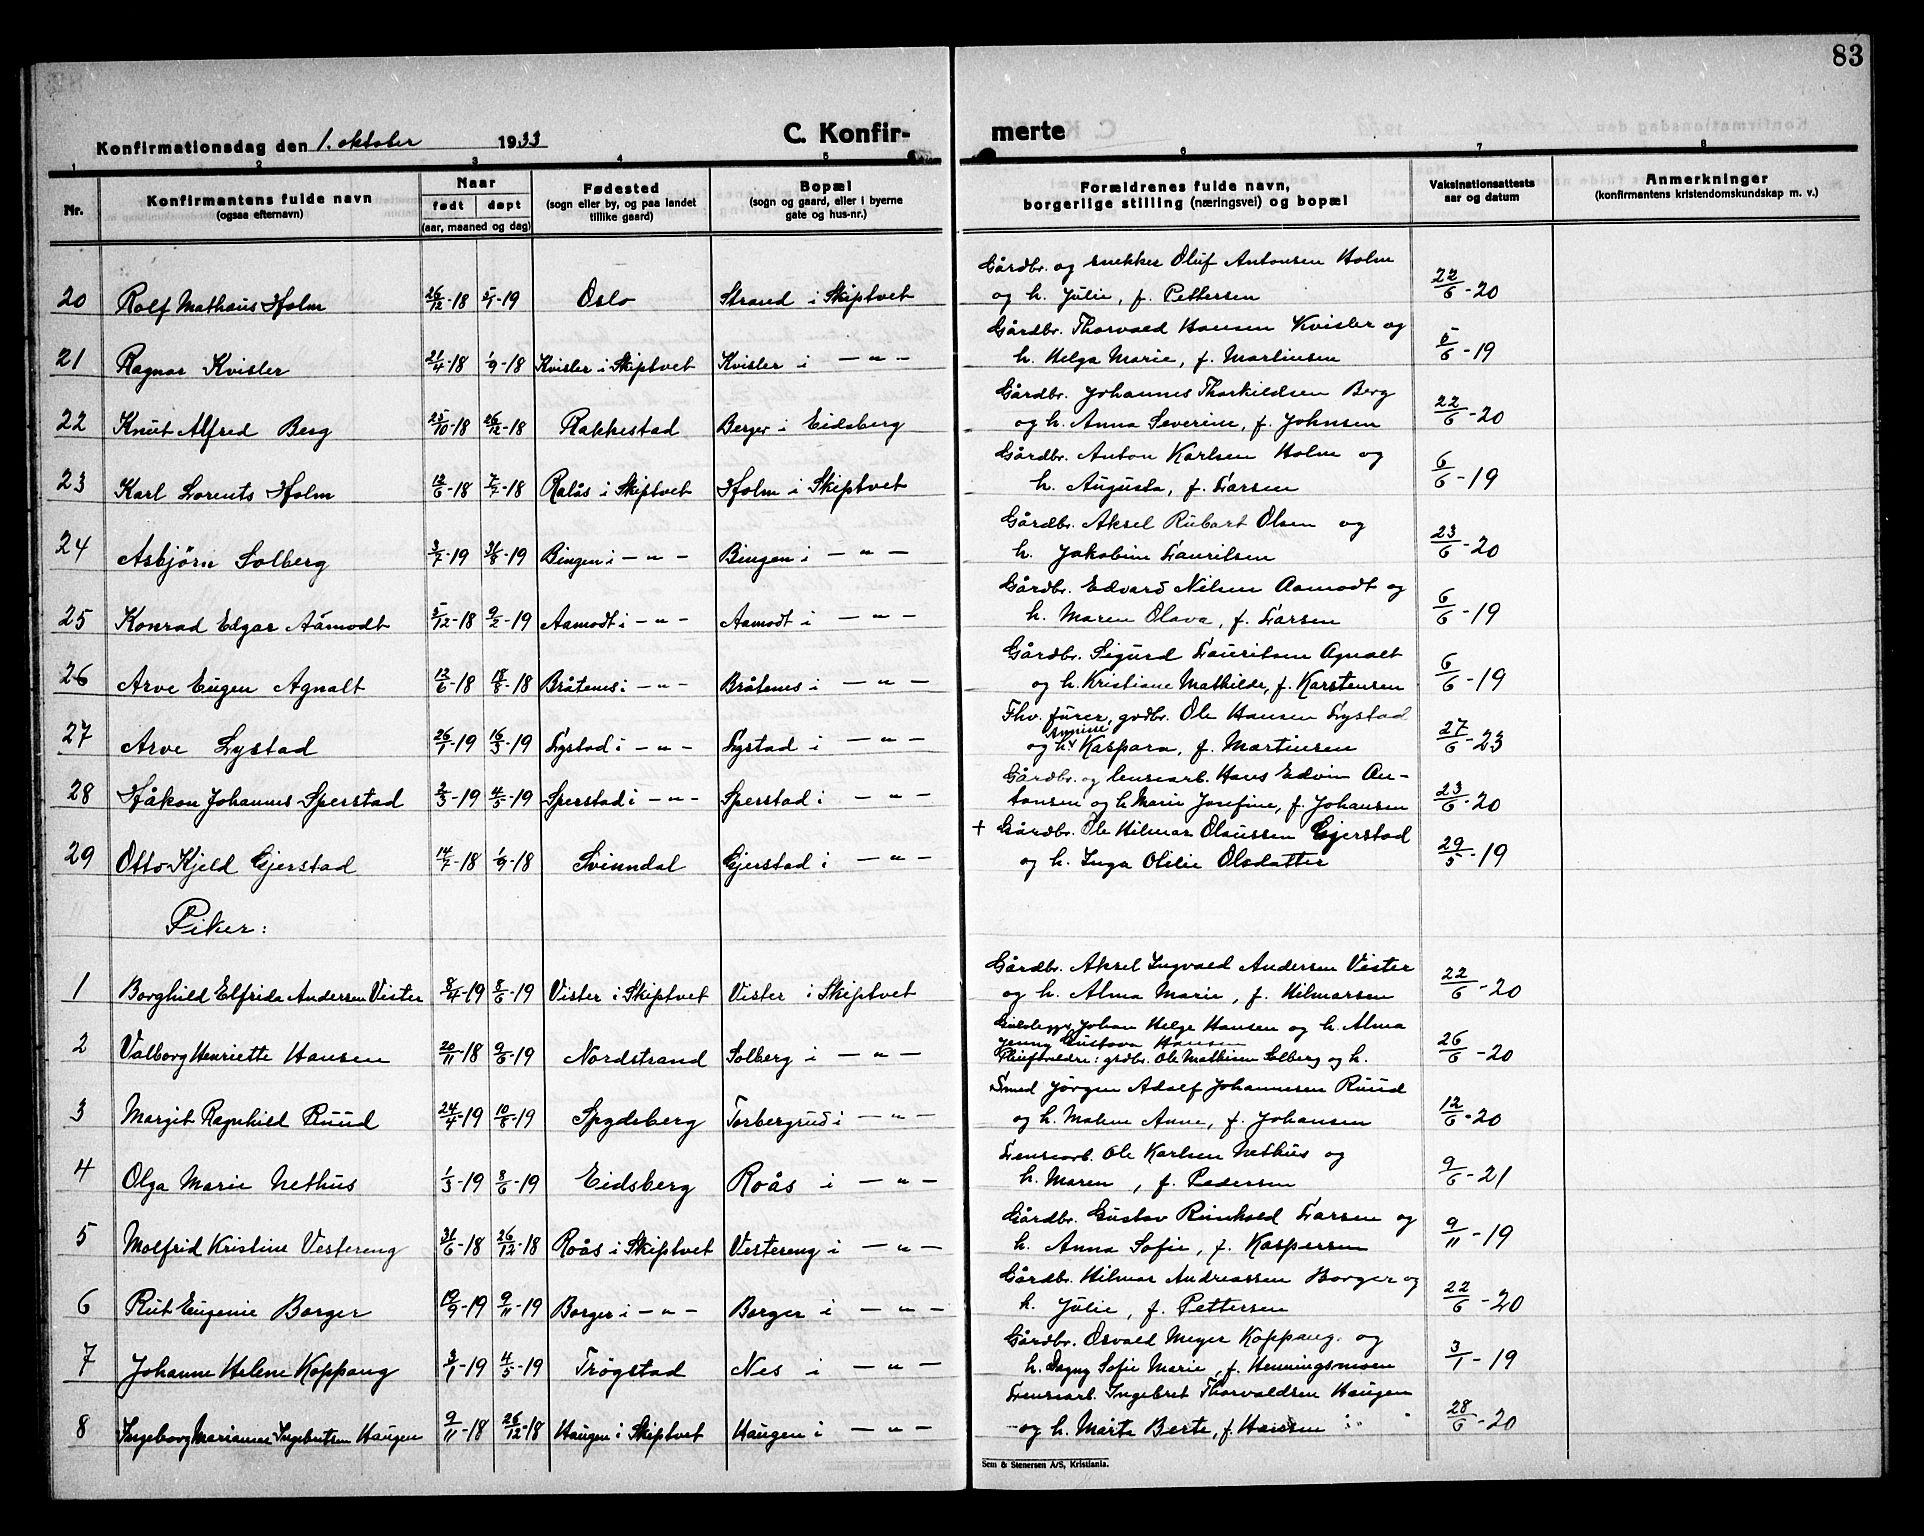 83
Konfirmationsdag den 1. oktober 1933
C. Konfir-
merte
1 2 3 4 5 6 7 8
Nr.
Konfirmantens fulde navn
(ogsaa efternavn)
Naar
født døpt
(aar, maaned og dag)
Fødested
(sogn eller by, og paa landet
tillike gaard)
Bopæl
(sogn og gaard, eller i byerne
gate og hus-nr.)
Forældrenes fulde navn,
borgerlige stilling (næringsvei) og bopæl
Vaksinationsattests
aar og datum
Anmerkninger
(konfirmantens kristendomskundskap m. v.)
Gårdbr. og snekker Oluf Antonsen Holm
20 Rolf Mathæus Holm 26/12-18 5/1-19 Oslo Strand i Skiptvet og h. Julie, f. Pettersen 22/6-20
Gårdbr. Thorvald Hansen Kvisler og
21 Ragnar Kvisler 21/4-18 1/9-18 Kvisler i Skiptvet Kvisler i — " — h. Helga Marie, f. Martinsen 5/6-19
Gårdbr. Johannes Thorkildsen Berg
22 Knut Alfred Berg 25/10-18 26/12-18 Rakkestad Berger i Eidsberg og h. Anna Severine, f. Johnsen 22/6-20
Gårdbr. Anton Karlsen Holm og
23 Karl Lorents Holm 12/6-18 7/7-18 Ralås i Skiptvet Holm i Skiptvet h. Augusta, f. Larsen 6/6-19
Gårdbr. Aksel Rubart Olsen og
24 Asbjørn Solberg 3/7-19 31/8-19 Bingen i — " — Bingen i — " — h. Jakobine Lauritsen 23/6-20
Gårdbr. Edvard Nilsen Aamodt og
25 Konrad Edgar Aamodt 5/12-18 9/2-19 Aamodt i — " — Aamodt i — " — h. Maren Olava, f. Larsen 6/6-19
Gårdbr. Sigurd Lauritsen Agnalt
26 Arve Eugen Agnalt 12/6-18 18/8-18 Bråtenes i — " — Bråtenes i — " — og h. Kristiane Mathilde, f. Karstensen 6/6-19
Fhv. furer, grdbr. Ole Hansen Lystad
27 Arve Lystad 26/1-19 16/3-19 Lystad i — " — Lystad i — " — og h. Kaspara, f. Martinsen 27/6-23
Gårdbr. og lensearb. Hans Edvin An-
28 Håkon Johannes Sperstad 2/3-19 4/5-19 Sperstad i — " — Sperstad i — " — tonsen og h. Marie Josefine, f. Johansen 23/6-20
+ Gårdbr. Ole Hilmar Olaussen Gjerstad
29 Otto Kjeld Gjerstad 14/7-18 1/9-18 Svinndal Gjerstad i — " — og h. Inga Otilie Olsdatter 29/5-19
Piker:
Gårdbr. Aksel Ingvald Andersen Vister
1 Borghild Elfrida Andersen Vister 8/4-19 8/6-19 Vister i Skiptvet Vister i Skiptvet og h. Alma Marie, f. Hilmarsen 22/6-20
Johan Helge Hansen og h. Alma
Jenny Gustava Hansen
2 Valborg Henriette Hansen 20/11-18 9/6-19 Nordstrand Solberg i — " — Pleiforeldre: grdbr. Ole Mathisen Solberg og h. 26/6-20
Smed Jørgen Adolf Johannesen Ruud
3 Margit Ragnhild Ruud 24/4-19 10/8-19 Spydeberg Torbergrud i — " — og h. Malene Anne, f. Johansen 12/6-20
Lensearb. Ole Karlsen Nethus og
4 Olga Marie Nethus 1/3-19 8/6-19 Eidsberg Roås i — " — h. Maren , f. Pedersen 9/6-21
Gårdbr. Gustav Reinhold Larsen og
5 Molfrid Kristine Vestereng 31/6-18 26/12-18 Roås i Skiptvet Vestereng i — " — h. Anna Sofie, f. Kaspersen 9/11-19
Gårdbr. Hilmar Andreassen Borger og
6 Rut Eugenie Borger 19/9-19 9/11-19 Borger i — " — Borger i — " — h. Julie, f. Pettersen 22/6-20
Gårdbr. Osvald Meyer Koppang og
7 Johanne Helene Koppang 3/1-19 4/5-19 Trøgstad Nes i — " — h. Dagny Sofie Marie, f. Henningsmoen 3/1-19
Lensearb. Ingebret Thorvaldsen Haugen
8 Ingeborg Marianne Ingebretsen Haugen 9/11-18 26/12-18 Haugen i Skiptvet Haugen i — " — og h. Marte Berte, f. Hansen 28/6-20
Sem & Stenersen A/S, Kristiania.